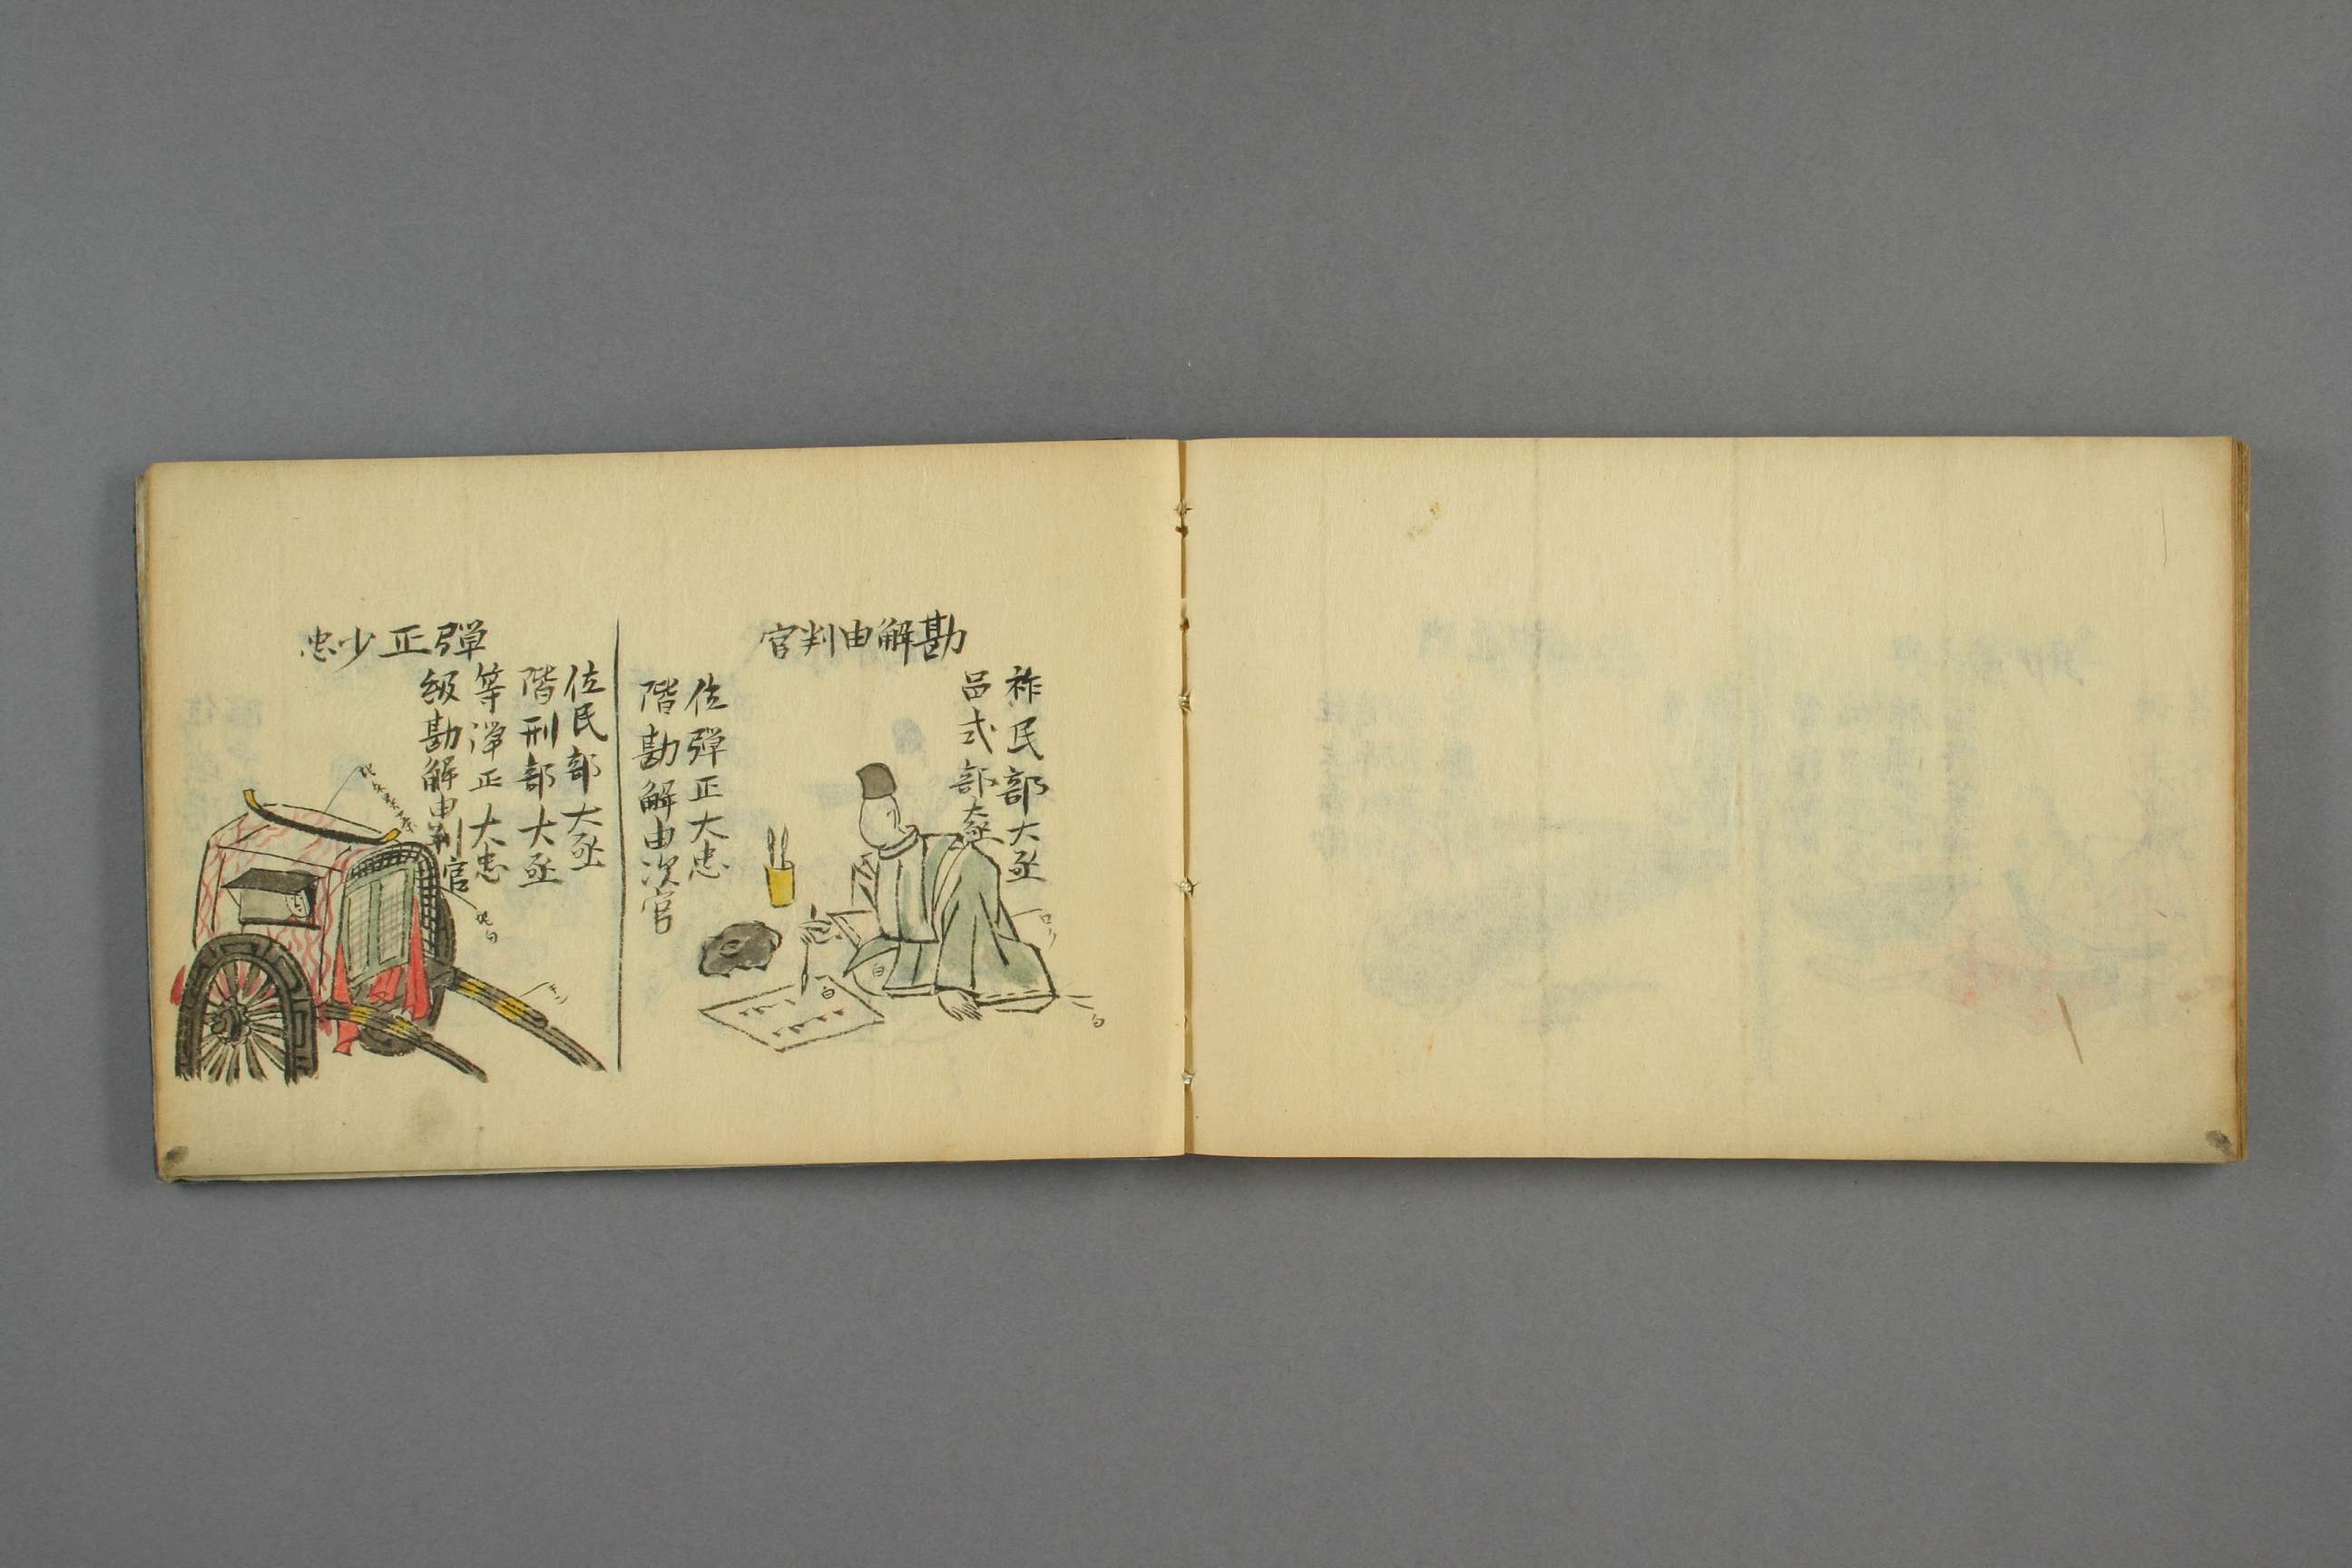 勘解由判官
祚民部大丞
呂式部大丞
佐弾正大忠
階勘解由次官
弾正少忠
佐民部大丞
階刑部大丞
等浄正大忠
級勘解由判官
白
白
白